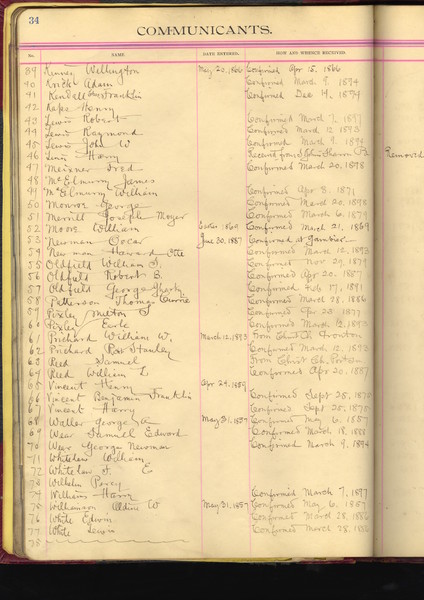 34
COMMUNICANTS.
No. NAME DATE ENTERED. HOW AND WHENCE RECEIVED.
39 Kinney Wellington May 20, 1866 Confirmed Apr 15, 1866
40 Krick Adam Confirmed March 9, 1894
41 Kendall Franklin Confirmed Dec 14, 1894
42 Henry
43 Lewis Robert Confirmed March 7, 1897
44 Lewis Raymond Confirmed March 12, 1893
45 Lewis John W Confirmed March 9, 1894
46 Lewis Harry Removed
47 Meixner Fred Confirmed March 20, 1898
48 McElmurry James
49 McElmurry William Confirmed Apr 8, 1871
50 Monroe George Confirmed March 20, 1898
51 Merrill Joseph Moyer Confirmed March 6, 1879
52 Moore William Easter 1869 Confirmed March 21, 1869
53 Newman Oscar June 30, 1887 Confirmed at Gambier
54 Newman Howard Otte Confirmed March 12, 1893
55 Oldfield William J. Confirmed Nov 29, 1879
56 Oldfield Robert S. Confirmed Apr 20, 1887
57 Oldfield George Confirmed Feb 17, 1891
58 Patterson Thomas Currie Confirmed March 28, 1886
59 Pixley Milton Confirmed 28, 1877
60 Pixley Earle Confirmed March 12, 1893
61 Prichard William W. March 12, 1893 From Christ Ch Ironton
62 Prichard Stanley Confirmed March 12, 1893
63 Reed Samuel From Christ Ch.
64 Reed William L. Confirmed Apr 20, 1887
65 Vincent Henry Apr 24, 1859
66 Vincent Benjamin Franklin Confirmed Sept 25, 1870
67 Vincent Harry Confirmed Sept 20, 1875
68 Waller George A May 31, 1857 Confirmed May 6, 1857
69 Wear Samuel Edward Confirmed March 18, 1888
70 Wear George Newman Confirmed March 9, 1894
71 Whitelaw William
72 Whitelaw J. E
73 Wilhelm Percy
74 Williams Harry Confirmed March 7, 1897
75 Williamson W May 31, 1857 Confirmed May 6, 1857
76 White Edwin Confirmed March 28, 1886
77 White Lewis Confirmed March 28, 1886
78